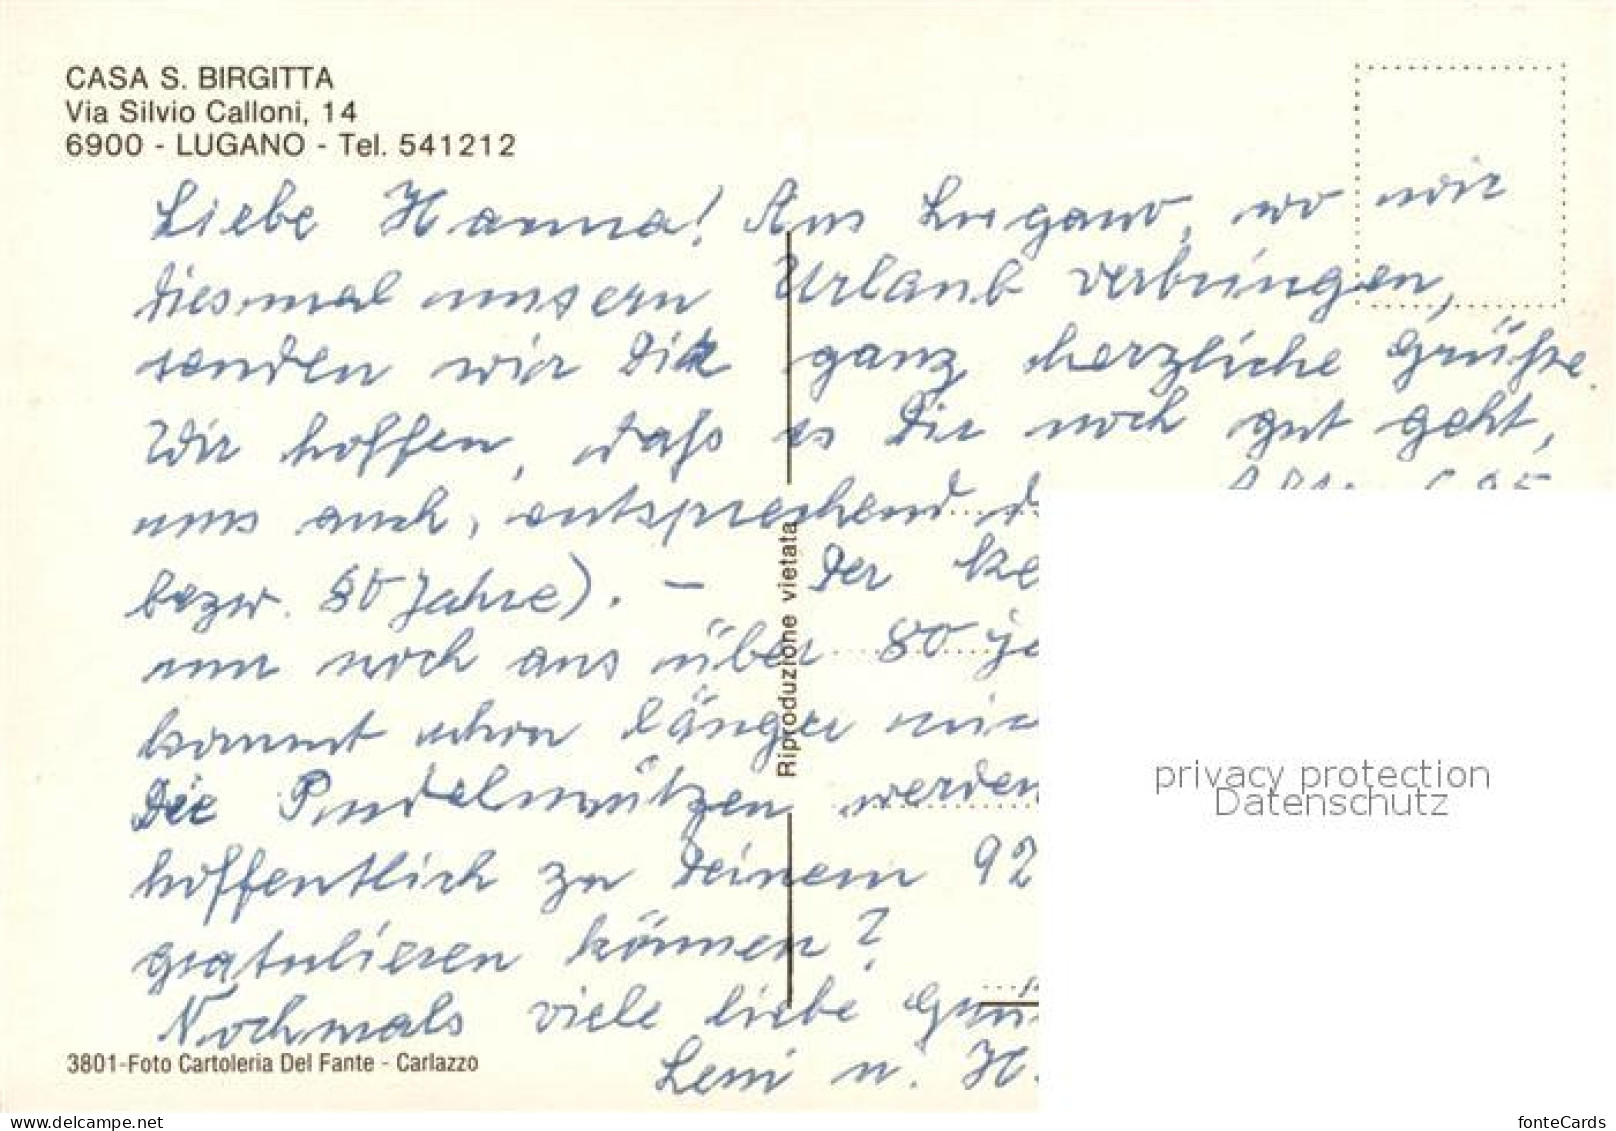 CASA S. BIRGITTA
Via Silvio Calloni, 14
6900 - LUGANO - Tel. 541212
Liebe Hanna! Aus Lugano, wo wir
diesmal unsern Urlaub verbringen,
senden wir Dir ganz herzliche Grüße.
Wir hoffen, daß es Dir noch gut geht,
uns auch, entsprechend
bezw. 80 Jahre). - Der
nun noch aus über 80
kommt schon länger
Die Pudelmützen werden
hoffentlich zu Deinem 92
gratulieren können?
Nochmals viele liebe
Leni u. H.
Riproduzione vietata
3801-Foto Cartoleria Del Fante - Carlazzo
privacy protection
Datenschutz
www.delcampe.net
fonteCards